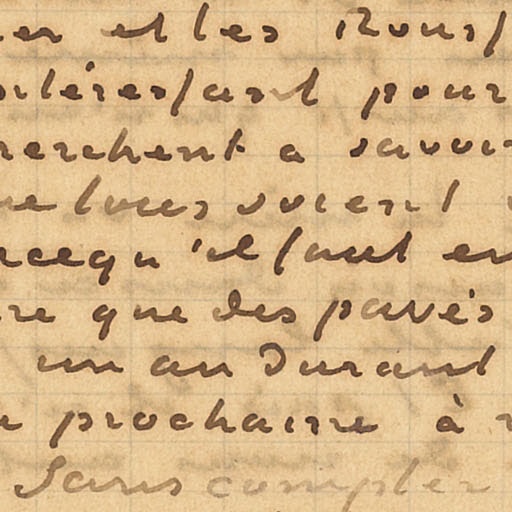 er et les Trous/
ntéressant pour
herchent a savoir
ue tous soient
rcequ'il faut en
re que des pavés
un an Durant
prochaine à
Sans compter